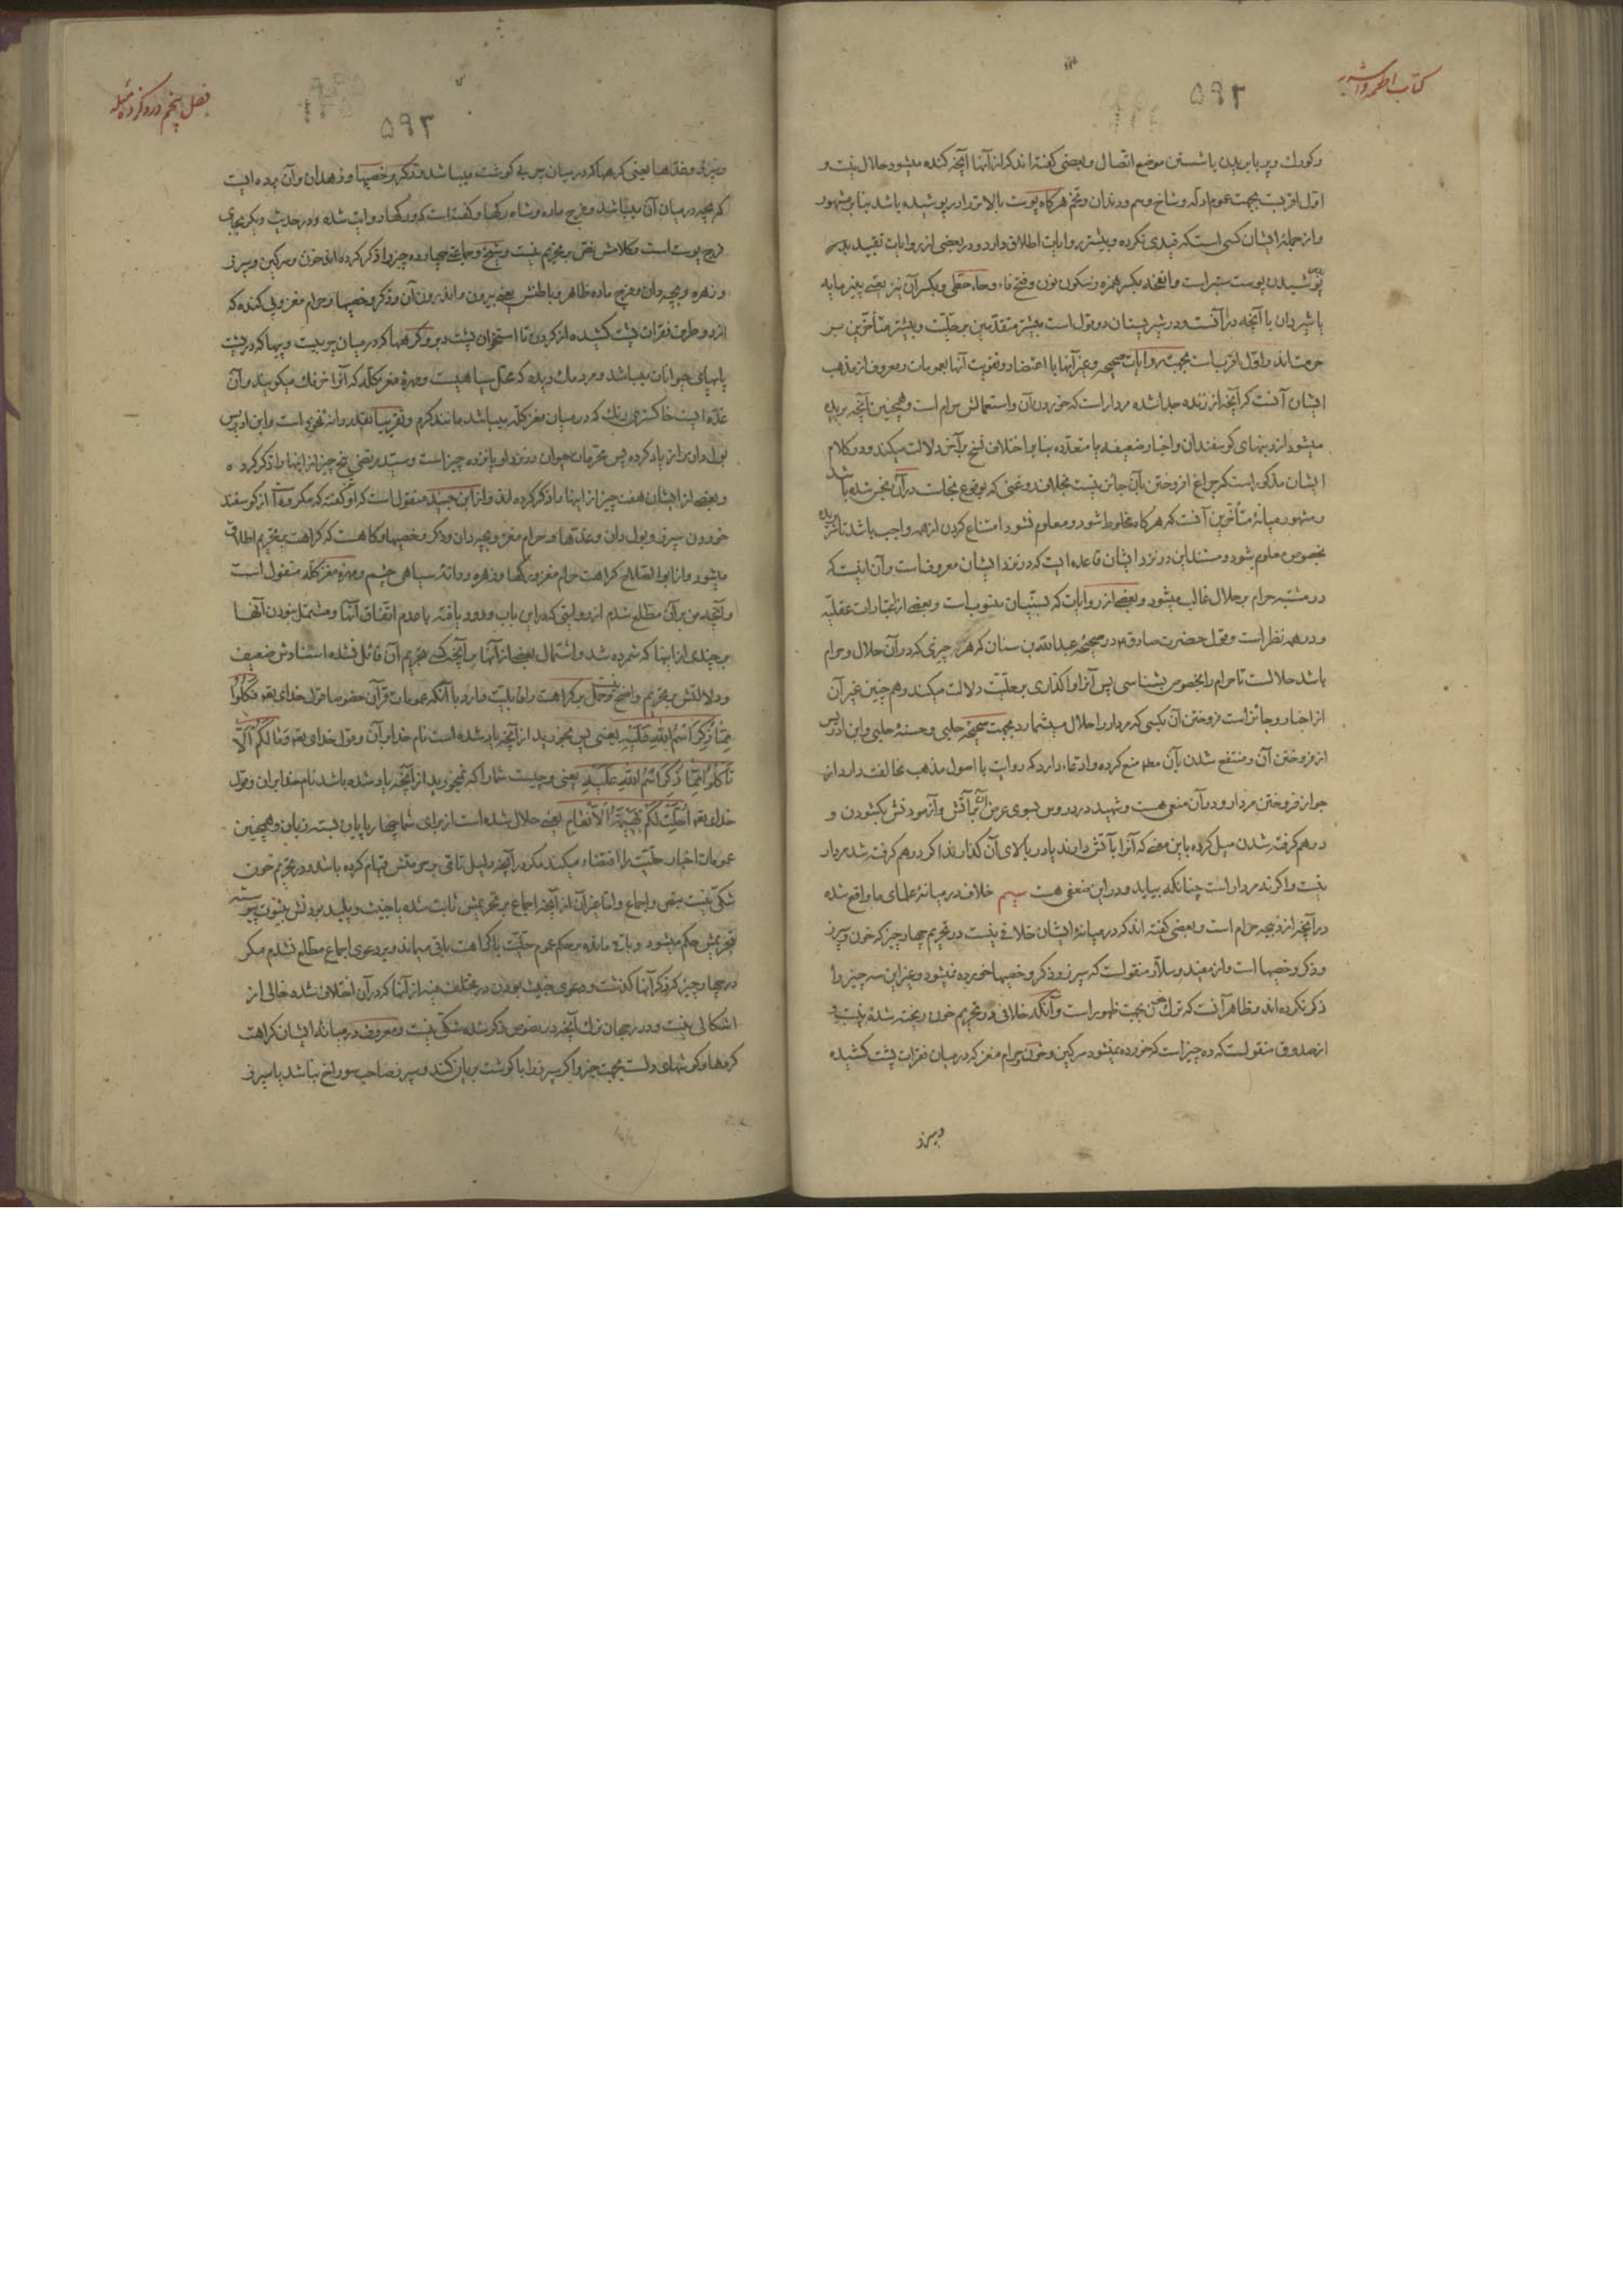 کتاب اطعمه واشربه
۵۹۲
وکورك وپر بابریدن یا شستن موضع اتصال وبعضی کفته اند که از آنها آنچه کنده میشود حلال نیست و
اوّل اقربست بجهت عموم ادلّه وشاخ وسم ودندان وتخم هرکاه پوست بالا تر را در پوشیده باشد بنا بر مشهور
واز جملهٔ ایشان کسی است که قیدی نکرده وبیشتر روایات اطلاق دارد ودر بعضی از روایات تقیید
پوشیدن پوست سبتر است وانفحه بکسر همزه وسکون نون وفتح فاء وحاء حطّی وبکسر آن نیز یعنی پنیر مایه
یا شیردان با آنچه در آنست ودر شیر پستان دو قول است بیشتر متقدّمین بر حلیّت وبیشتر متأخّرین بر
حرمت اند واوّل اقربست بجهت روایات صحیحه وغیر آنها با اعتضاد وتقویت آنها بعمومات ومعروف از مذهب
ایشان آنست که آنچه از زنده جدا شده مردار است که خوردن آن واستعمالش حرام است وهمچنین آنچه بریده
میشود از دنبهای کوسفندان واخبار ضعیفه یا متعدّده بنا بر اختلاف نسخ بر آن دلالت میکند ودر کلام
ایشان مذکور است که چراغ افروختن بآن جائز نیست بخلاف روغنی که بوقوع نجاست در آن نجس شده باشد
ومشهور میانهٔ متأخّرین آنست که هرکاه مخلوط شود ومعلوم نشود امتناع کردن از همه واجب باشد تا
بخصوص معلوم شود ومستند این در نزد ایشان قاعده ایست که در نزد ایشان معروفست وآن اینست که
در مشتبه حرام بر حلال غالب میشود وبعضی از روایات که بسنّیان منسوب است وبعضی از اعتبارات عقلیّه
ودر همه نظر است وقول حضرت صادق ع در صحیحهٔ عبدالله بن سنان که هر چیزی که در آن حلال وحرام
باشد حلالست تا حرام را بخصوص بشناسی پس آنرا واکذاری بر حلیّت دلالت میکند وهمچنین غیر آن
از اخبار وجائز است فروختن آن بکسی که مردار را حلال میشمارد بجهت صحیحهٔ حلبی وحسنهٔ حلبی وابن ادریس
از فروختن آن ومنتفع شدن بآن مط منع کرده وادعاء دارد که روایت با اصول مذهب مخالفت دارد از
جواز فروختن مردار ودر آن منعی هست وشهید در دروس بسوی عرض آن بآتش وآزمودنش بکشودن و
درهم کرفته شدن میل کرده باین معنی که آنرا بآتش دارند یا در بالای آن کذارند اکر درهم کرفته شد مردار
نیست واکرنه مردار است چنانکه بیاید ودر این منعی هست سیم خلاف در میانهٔ علمای ما واقع شده
در آنچه از ذبیحه حرام است وبعضی کفته اند که در میانهٔ ایشان خلافی نیست در تحریم چهار چیز که خون وسپرز
وذکر وخصیها است واز مفید وسلّار منقولست که سپرز وذکر وخصیها خورده نمیشود وغیر این سه چیز را
ذکر نکرده اند وظاهر آنست که ترك خون بجهت ظهور است وآنکه خلافی در تحریم خون ریخته شده نیست
از صدوق منقولست که ده چیز است که خورده نمیشود سرکین وخون وحرام مغز که در میان فقرات پشت کشیده
وسپرز
فصل پنجم در ذکر ده مسئله
۵۹۳
وسپرز وغدّها یعنی کرهها که در میان پیه یا کوشت میباشد وذکر وخصیها وزهدان وآن پرده ایست
که بچه در میان آن میباشد وفرج ماده وشاه رکها وکفته است که رکها روایت شده ودر حدیث دیکر بجای
فرج پوست است وکلامش نصّ بر تحریم نیست وشیخ وجماعتی چهارده چیز را ذکر کرده اند خون وسرکین وسپرز
وزهره وبچه دان وفرج ماده ظاهر وباطنش یعنی بیرون واندرون آن وذکر وخصیها وحرام مغز وپی کنده که
از دو طرف فقرات پشت کشیده از کردن تا استخوان پشت وغدد وکرهها که در میان پیه است وپیها که در پشت
پاهای حیوانات میباشد ومردمك دیده که محلّ سیاهیست ومهرهٔ مغز کلّه که آنرا خرزك میکویند وآن
غدّه ایست خاکستری رنك که در میان مغز کلّه میباشد مانند کرم وتقریبا بقدر دانه نخودی است وابن ادریس
بول دان را زیاد کرده پس محرّمات حیوان در نزد او پانزده چیز است وسیّد مرتضی پنج چیز از اینها را ذکر کرده
وبعضی از ایشان هفت چیز از اینها را ذکر کرده اند واز ابن جنید منقولست که او کفته که مکروه است از کوسفند
خوردن سپرز وبول دان وغدّها وحرام مغز وبچه دان وذکر وخصیها وکاهست که کراهت بر تحریم اطلاق
میشود واز ابوالصّلاح کراهت حرام مغز ورکها وزهره ودانهٔ سیاهی چشم ومهرهٔ مغز کلّه منقول است
وآنچه من بر آن مطّلع شدم از روایتی که در این باب ورود یافته با عدم اتّفاق آنها ومشتمل نبودن آنها
بر چندی از اینها که شمرده شد واشتمال بعضی از آنها بر آنچه کسی بتحریم آن قائل نشده اسنادش ضعیف
ودلالتش بر تحریم واضح نیست وحمل بر کراهت را قابلیّت دارد با آنکه عمومات قرآن خصوصا قول خدای تعه فَكُلُوا
مِمَّا ذُكِرَ اسْمُ اللهِ عَلَيْهِ یعنی پس بخورید از آنچه یاد شده است نام خدا بر آن وقول خدای تعه وَمَا لَكُمْ أَلَّا
تَأْكُلُوا مِمَّا ذُكِرَ اسْمُ اللهِ عَلَيْهِ یعنی وچیست شما را که نمیخورید از آنچه یاد شده باشد نام خدا بر آن وقول
خدای تعه أُحِلَّتْ لَكُمْ بَهِيمَةُ الْأَنْعَامِ یعنی حلال شده است از برای شما چهارپایان بسته زبان وهمچنین
عمومات اخبار حلیّت را اقتضاء میکند مکر در آنچه دلیل تامّی بر حرمتش قیام کرده باشد ودر تحریم خون
شکّی نیست بنصّ واجماع وامّا غیر آن از آنچه اجماع بر تحریمش ثابت شده یا خبیث وپلید بودنش بثبوت پیوسته
بتحریمش حکم میشود وباقی مانده بر حکم عموم حلیّت با کراهت باقی میماند وبر دعوی اجماع مطّلع نشدم مکر
در چهار چیز که ذکر آنها کذشت ودعوی خبیث بودن در مختلف فیه از آنها که در آن اختلاف شده خالی از
اشکالی نیست ودر رجحان ترك آنچه در نصوص ذکر شده شکّی نیست ومعروف در میانهٔ ایشان کراهت
کرهها وکوشهای دلست بجهت خبر واکر سپرز را با کوشت بریان کنند وسپرز صاحب سوراخ نباشد یا سپرز